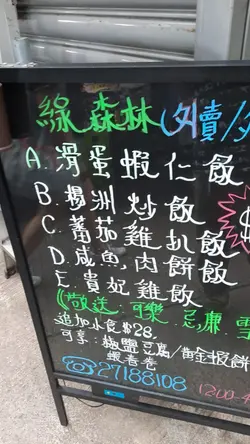 綠森林(外賣/
A. 滑蛋蝦仁飯
B. 楊洲炒飯
C. 蕃茄雞扒飯
D. 咸魚肉餅飯
E 貴妃雞飯
(敬送:可樂 忌廉 雪
追加小食$28,
可享:椒鹽豆腐/黃金板餅
蝦卷卷
☎27188108
1200-